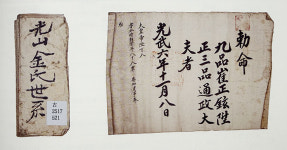 光山金氏世系
古
2517
621
勅命
九品崔正陞
正三品通政大
夫者
光武六年十一月八日